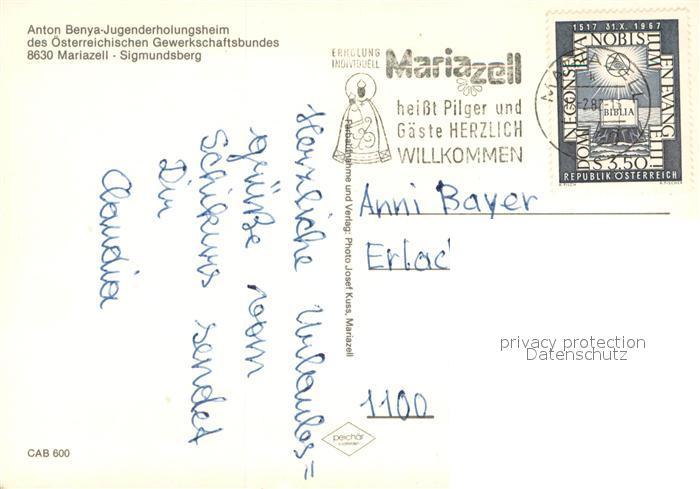 Anton Benya-Jugenderholungsheim
des Österreichischen Gewerkschaftsbundes
8630 Mariazell - Sigmundsberg
Herzliche Urlaubs=
grüße vom
Schikurs sendet
Dir
Claudia
CAB 600
Farbaufnahme und Verlag: Photo Josef Kuss, Mariazell
peichär
ERHOLUNG
INDIVIDUELL
Mariazell
heißt Pilger und
Gäste HERZLICH
WILLKOMMEN
1517 31.X. 1967
NOBIS
BIBLIA
S 3.50
REPUBLIK ÖSTERREICH
A.PISCH
A.FISCHER
Anni Bayer
Erlac
1100
privacy protection
Datenschutz